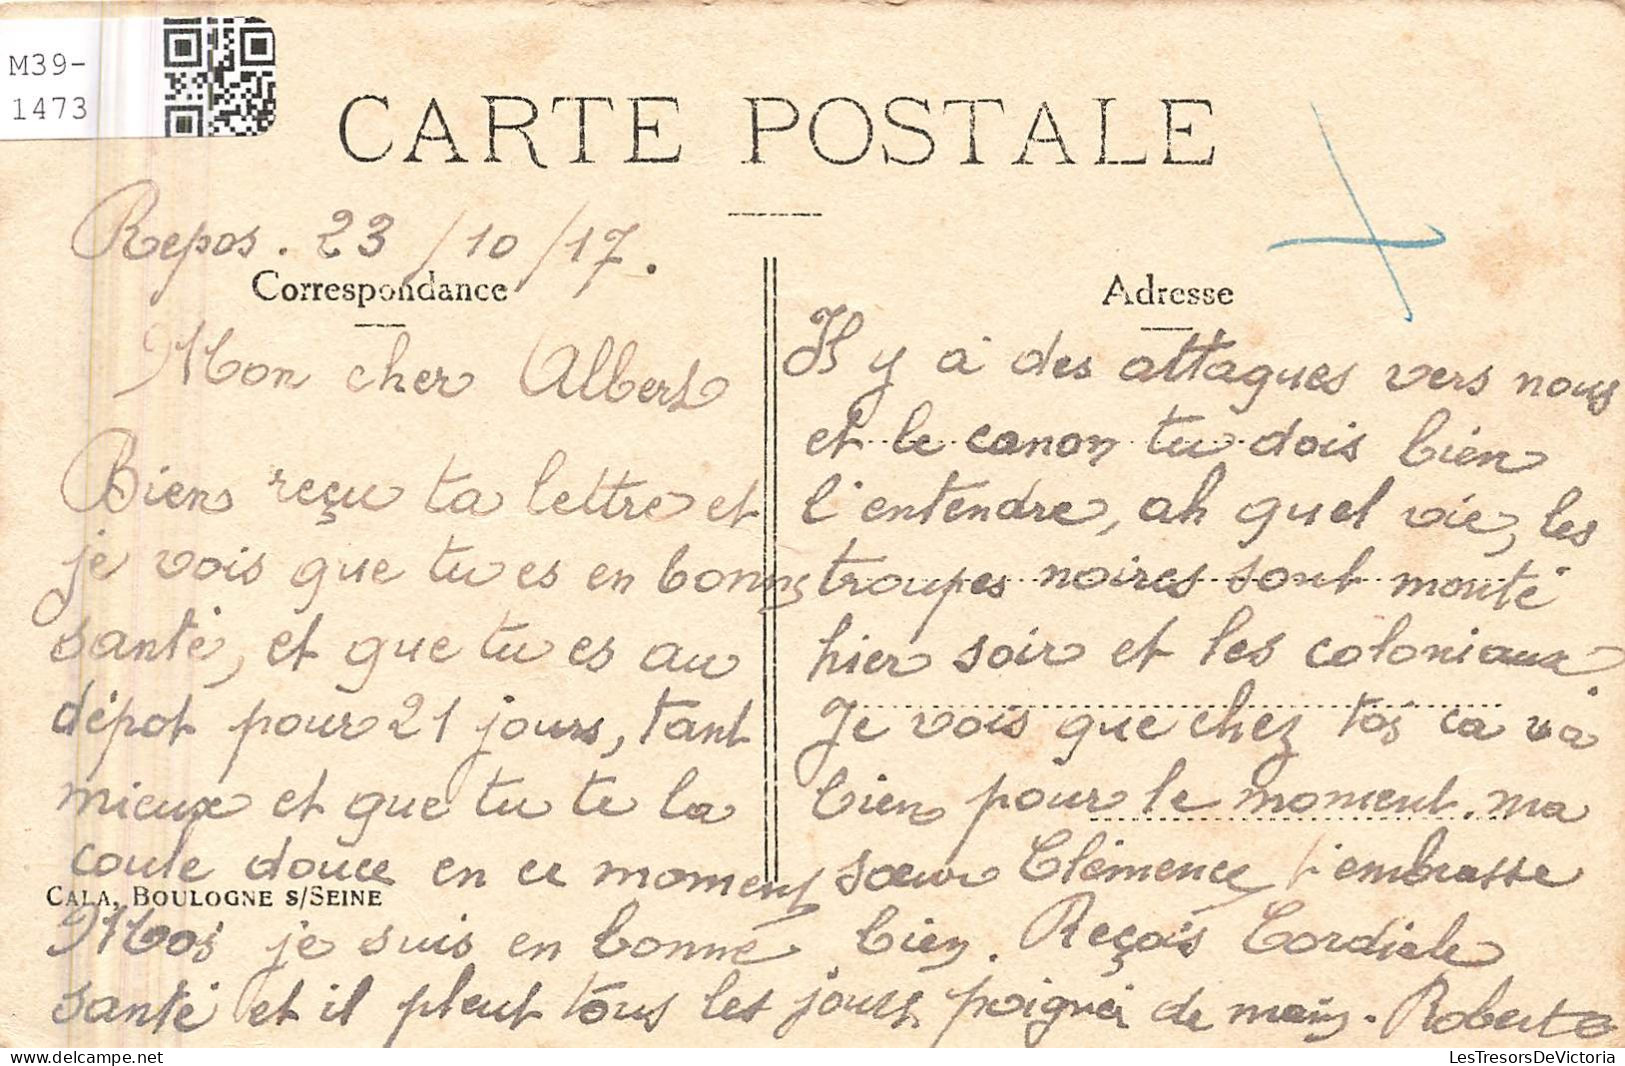 M39-
1473
CARTE POSTALE
Repos. 23/10/17.
Correspondance
Mon cher Albert
Bien reçu ta lettre et
je vois que tu es en bonne
santé, et que tu es au
dépot pour 21 jours, tant
mieux et que tu te la
coule douce en ce moment
CALA, BOULOGNE S/SEINE
Moi je suis en bonne
santé et il pleut tous les jours
Adresse
Il y à des attaques vers nous
et le canon tu dois bien
l'entendre, ah quel vie, les
troupes noires sont monté
hier soir et les coloniaux
Je vois que chez toi ca va
bien pour le moment. ma
sœur Clémence t'embrasse
bien. Reçois Cordiale
poignée de main. Robert
LesTresorsDeVictoria
LesTresorsDeVictoria.com